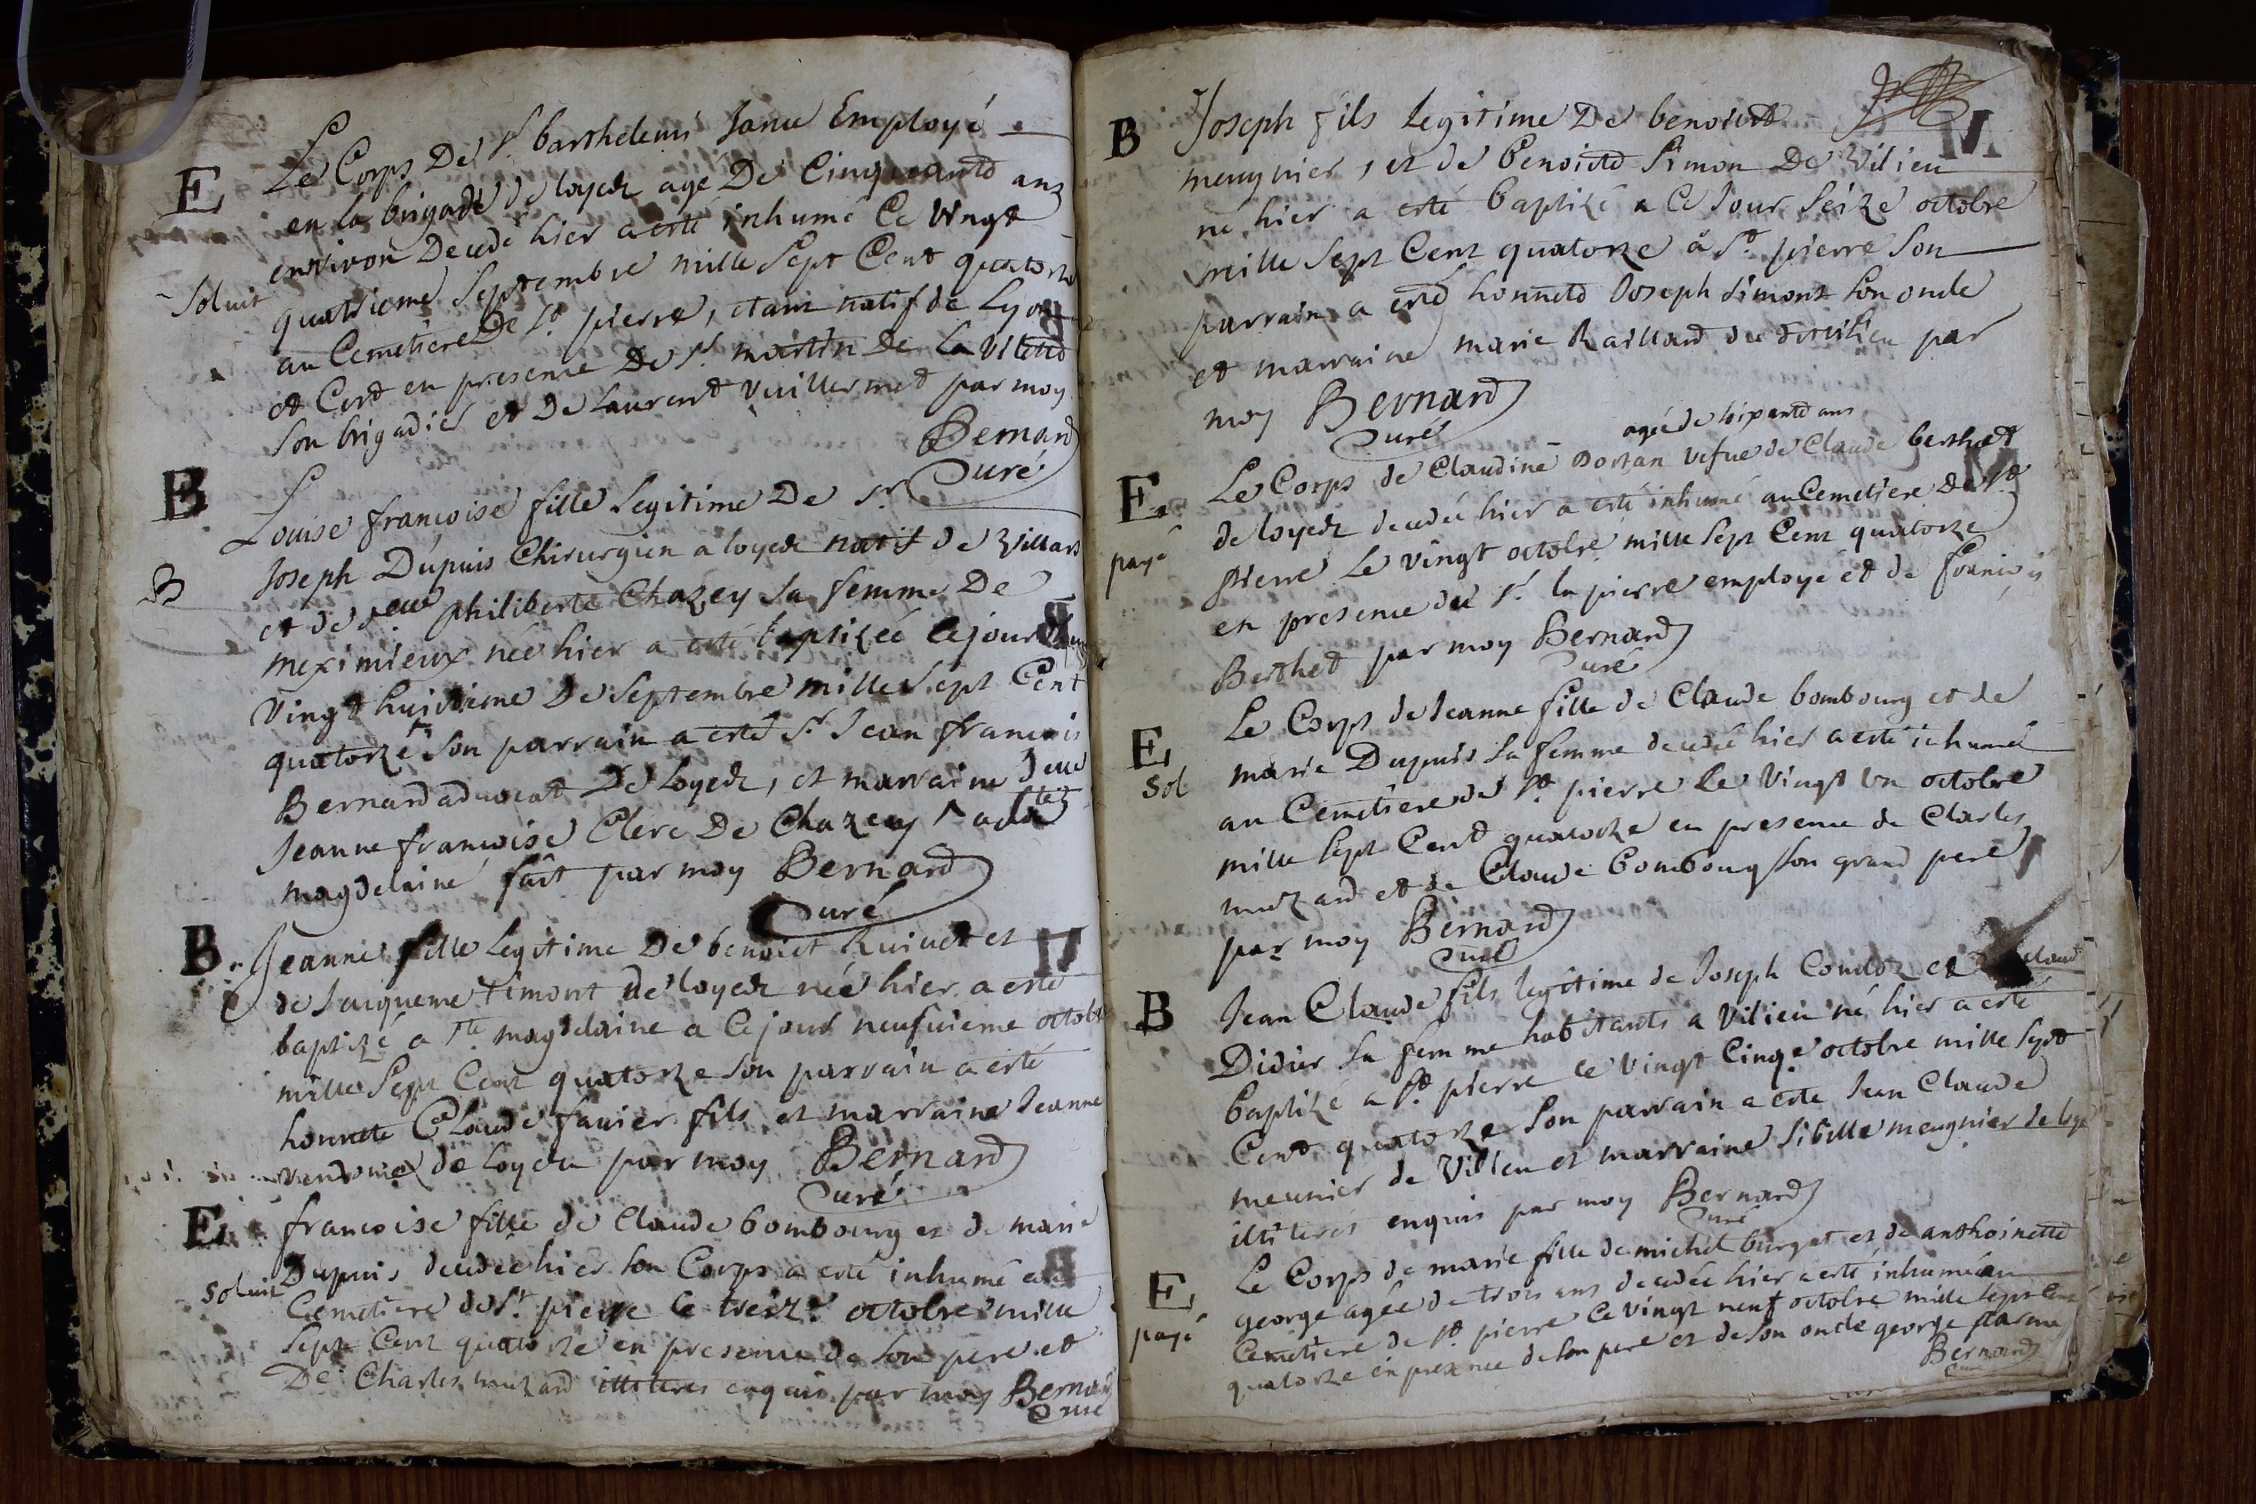 E
Le Corps De Sr. barthelemi Janu Employé
en la brigade de loyen agé De Cinquante ans
environ Decedé hier a esté inhumé Ce vingt
Soluit
quatrieme Septembre mille Sept Cent quatorze
au Cemetiere De St. pierre, etant natif de Lyon
et Cest en presence De Sr. martin De la Vilette
Son brigadier et De Laurent Vuillermet par moy
Bernard
Curé
B
Louise françoise fille Legitime De Sr.
Joseph Dupuis Chirurgien a loyen natif de Villars
B
et de philiberte Chazey Sa femme De
meximieux née hier a esté baptizée Ce jour
Vingt huitieme De Septembre mille Sept Cent
quatorze Son parrain a esté Sr. Jean francois
Bernard advocat De Loyen, et marraine
Jeanne francoise Clerc De Chazey
magdelaine fait par moy Bernard
Curé
B
Jeanne fille Legitime De benoict Ruinet et
de Jacqueme timont de loyen née hier a esté
baptizé a Ste magdelaine a Ce jour neufuieme octobre
mille Sept Cent quatorze Son parrain a esté
honnete Claude fauier fils et marraine Jeanne
de loyen par moy Bernard
Curé
E
francoise fille de Claude bombourg et de marie
Soluit
Dupuis decedée hier Son Corps a esté inhumé au
Cemetiere de St. pierre le treiz.e octobre mille
Sept Cent quatorze en presence de Son pere et
De Charles muzard illiteres enquis par moy Bernard
Curé
B
Joseph fils Legitime De benoict
meugnier, et de benoicte Simon De Vilieu
né hier a esté baptizé a Ce Jour Seize octobre
mille Sept Cent quatorze à St. pierre Son
parrain a esté honnete Joseph Simont Son oncle
et marraine marie Raillard par
moy Bernard
Curé
agée de soixante ans
E
Le Corps de Claudine Dortan vefue de Claude berthet
de loyen decedée hier a esté inhumé au Cemetiere De St
payé
pierre Le vingt octobre mille Sept Cent quatorze
en presence du Sr. la pierre employé et de francois
Berthet par moy Bernard
Curé
E
Le Corps de Jeanne fille de Claude bombourg et de
Sol
marie Dupuis Sa femme decedée hier a esté ihumé
au Cemetiere de St. pierre Le Vingt Un octobre
mille Sept Cent quatorze en presence de Charles
muzard et de Claude bombourg Son grand pere
par moy Bernard
Curé
B
Jean Claude fils legitime de Joseph Condoz et
Didier Sa femme habitants a Vilieu né hier a esté
baptizé a St. pierre Ce vingt Cinqe octobre mille Sept
Cent quatorze Son parrain a esté Jean Claude
meunier de Vilieu et marraine Sibille meugnier de
illiteres enquis par moy Bernard
Curé
E
Le Corps de marie fille de michel burgat et de anthoinette
george agée de trois ans decedée hier a esté inhumé au
payé
Cemetiere de St pierre Ce vingt neuf octobre mille Sept Cent
quatorze en presence de Son pere et de Son oncle george
Bernard
Curé